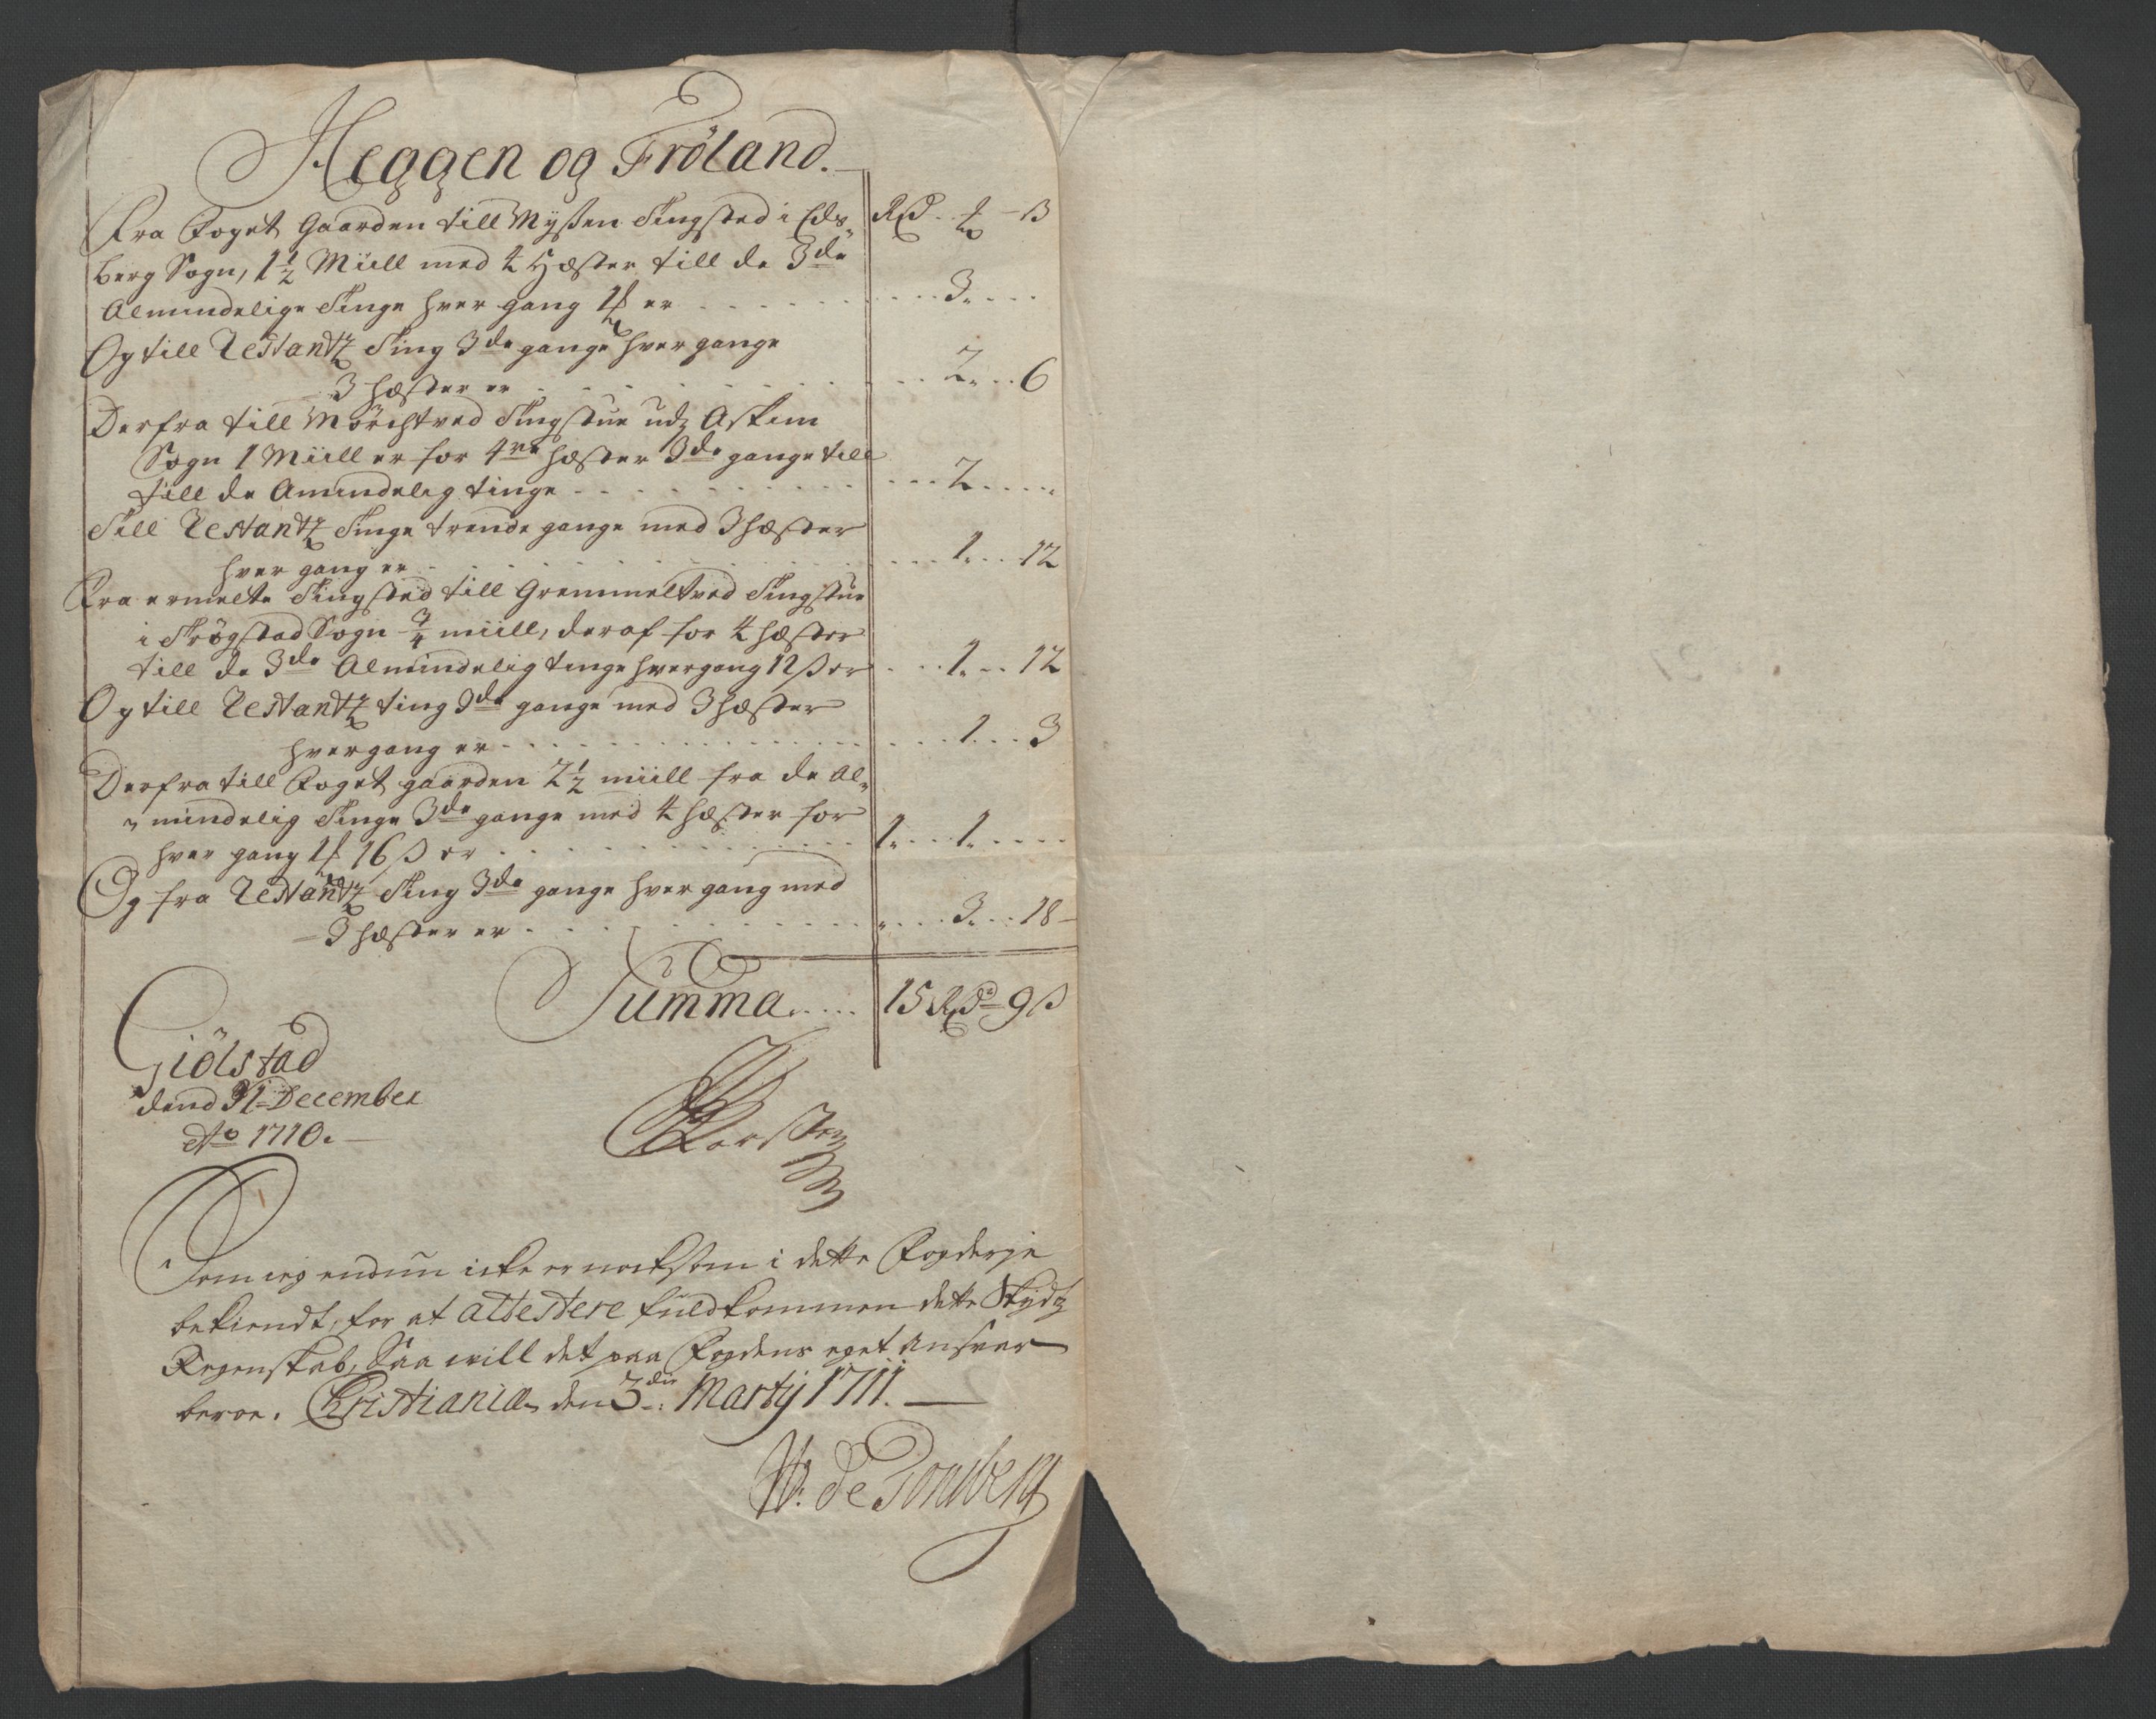 Heggen og Fröland.
Fra Foget Gaarden till Myßen Tingsted i Eds-
Rd - ß
berg Sogn, 1 1/2 Miill med 4 Hæster till de 3de
Almindelige Tinge hver gang er . . . . 3. . . .
Og till Restantz Ting 3de gange hver gange
3 hæster er . . . . 2. . . 6
Derfra till Mörchtved Tingstue udj Askim
Sogn 1 Miill er for 4re hæster 3de gange till
till de Amindelig tinge . . . . 2. . . .
Till Restantz Tinge trende gange med 3 hæster
hver gang er . . . . 1. . . 12
Fra ermelte Tingsted till Gremmeltved Tingstue
i Trögstad Sogn 3/4 miill, deraf for 4 hæster
till de 3de Almindelig tinge hvergang 12 ß er . . . 1. . . 12
Og till Restantz ting 3de gange med 3 hæster
hvergang er . . . . 1. . . 3
Derfra till Foget gaarden 2 1/2 miill fra de Al-
mindelig Tinge 3de gange med 4 hæster for
hver gang 16 ß er . . . . 1. . . 1. . . .
Og fra Restantz Ting 3de gange hver gang med
3 hæster er . . . . 3. . . 18
Summa . . . . 15 Rd 9 ß
Giölstad
dend 31 December
Ao 1710.
Som ieg endnu icke er nocksom i dette Fogderje
bekiendt, for at attestere fuldkommen dette Skydtz
Regenskab, Saa will det paa Fogdens eget Ansvar
beroe. Christiania den 3die Martij 1711.
W. de Tonsberg